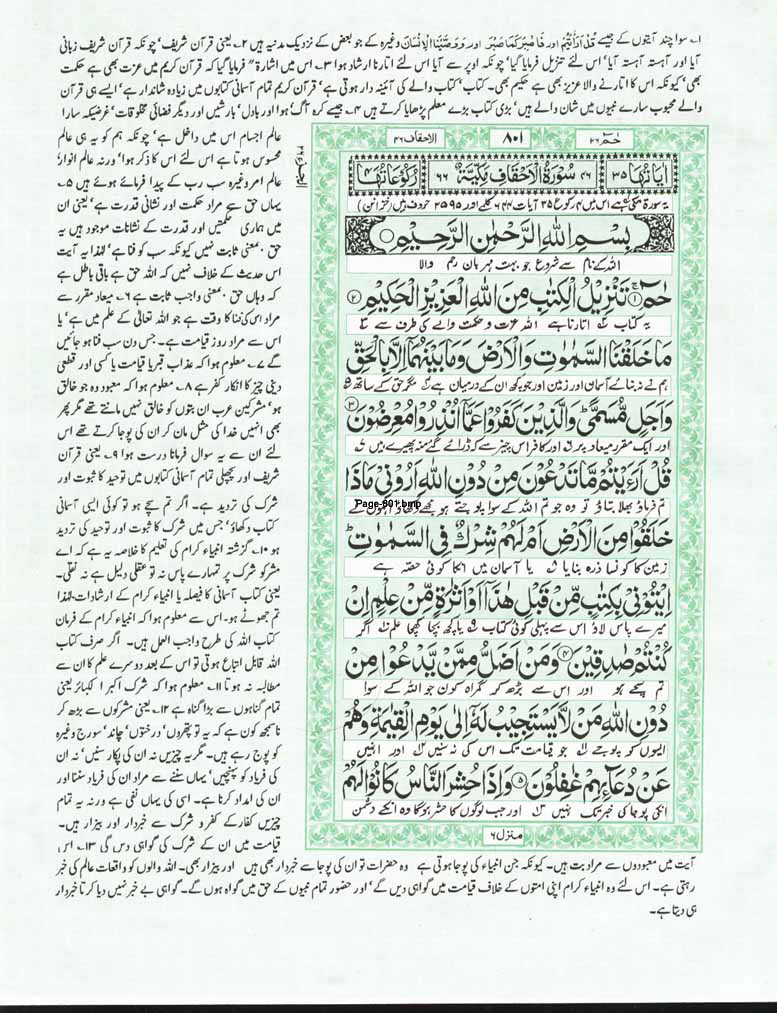 ۱۔ سوا چند آیتوں کے جیسے قُلْ اَرَاَیْتُمْ اور فَاصْبِرْ کَمَا صَبَرَ اور وَوَصَّیْنَا الْاِنْسَانَ وغیرہ کے جو بعض کے نزدیک مدنیہ ہیں ۲۔ یعنی قرآن شریف' چونکہ قرآن شریف زبانی
آیا اور آہستہ آہستہ آیا' اس لئے تنزیل فرمایا گیا' چونکہ اوپر سے آیا اس لئے اتارنا ارشاد ہوا ۳۔ اس میں اشارۃً فرمایا گیا کہ قرآن کریم میں عزت بھی ہے حکمت
بھی' کیونکہ اس کا اتارنے والا عزیز بھی ہے حکیم بھی۔ کتاب' کتاب والے کی آئینہ دار ہوتی ہے' قرآن کریم تمام آسمانی کتابوں میں زیادہ شاندار ہے' ایسے ہی قرآن
والے محبوب سارے نبیوں میں شان والے ہیں' بڑی کتاب بڑے معلم پڑھایا کرتے ہیں ۴۔ جیسے کرہ آگ' ہوا اور بادل' بارشیں اور دیگر فضائی مخلوقات' غرضیکہ سارا
عالم اجسام اس میں داخل ہے' چونکہ ہم کو یہ ہی عالم
محسوس ہوتا ہے اس لئے اس کا ذکر ہوا' ورنہ عالم انوار'
عالم امر وغیرہ سب رب کے پیدا فرمائے ہوئے ہیں ۵۔
یہاں حق سے مراد حکمت اور نشانی قدرت ہے' یعنی ان
میں ہماری حکمتیں اور قدرت کے نشانات موجود ہیں یہ
حق بمعنی ثابت نہیں کیونکہ سب کو فنا ہے' لہٰذا یہ آیت
اس حدیث کے خلاف نہیں کہ اللہ حق ہے باقی باطل ہے
کہ وہاں حق بمعنی واجب ثابت ہے ۶۔ میعاد مقرر سے
مراد اس کی فنا کا وقت ہے جو اللہ تعالیٰ کے علم میں ہے' یا
اس سے مراد روز قیامت ہے۔ جس دن سب فنا ہو جائیں
گے ۷۔ معلوم ہوا کہ عذاب قبر یا قیامت یا کسی اور قطعی
دینی چیز کا انکار کفر ہے ۸۔ معلوم ہوا کہ معبود وہ جو خالق
ہو' مشرکین عرب ان بتوں کو خالق نہیں مانتے تھے مگر پھر
بھی انہیں خدا کی مثل مان کر ان کی پوجا کرتے تھے اس
لئے ان سے یہ سوال فرمانا درست ہوا ۹۔ یعنی قرآن
شریف اور پچھلی تمام آسمانی کتابوں میں توحید کا ثبوت اور
شرک کی تردید ہے۔ اگر تم سچے ہو تو کوئی ایسی آسمانی
کتاب دکھاؤ' جس میں شرک کا ثبوت اور توحید کی تردید
ہو ۱۰۔ گزشتہ انبیاء کرام کی تعلیم کا خلاصہ یہ ہے کہ اے
مشرکو شرک پر تمہارے پاس نہ تو عقلی دلیل ہے نہ نقلی۔
یعنی کتاب آسمانی کا فیصلہ یا انبیاء کرام کے ارشادات' لہٰذا
تم جھوٹے ہو۔ اس سے معلوم ہوا کہ انبیاء کرام کے فرمان
کتاب اللہ کی طرح واجب العمل ہیں۔ اگر صرف کتاب
اللہ قابل اتباع ہوتی تو اس کے بعد دوسرے علم کا ان سے
مطالبہ نہ ہوتا ۱۱۔ معلوم ہوا کہ شرک اکبر الکبائر یعنی
تمام گناہوں سے بڑا گناہ ہے ۱۲۔ یعنی مشرکوں سے بڑھ کر
ناسمجھ کون ہے کہ یہ تو پتھروں' درختوں' چاند' سورج وغیرہ
کو پوج رہے ہیں۔ مگر یہ چیزیں نہ ان کی پکار سنیں' نہ ان
کی فریاد کو پہنچیں' یہاں سننے سے مراد ان کی فریاد سننا اور
ان کی امداد کرنا ہے۔ اسی کی یہاں نفی ہے ورنہ یہ تمام
چیزیں کفار کے کفر و شرک سے خبردار اور بیزار ہیں۔
قیامت میں ان کے شرک کی گواہی دیں گی ۱۳۔ اس
حٰمٓ ۲۶
۸۰۱
الاحقاف ۴۶
اٰیَاتُهَا ۳۵
۴۶ سُوْرَةُ الْاَحْقَافِ مَكِّيَّةٌ ۶۶
رُكُوْعَاتُهَا ۴
یہ سورۃ مکی ہے اس میں ۴ رکوع ۳۵ آیات ۶۴۴ کلمے اور ۲۵۹۵ حروف ہیں (خزائن)
بِسْمِ اللّٰهِ الرَّحْمٰنِ الرَّحِيْمِ
اللہ کے نام سے شروع جو بہت مہربان رحم والا
حٰمٓ ۱ تَنْزِيْلُ الْكِتٰبِ مِنَ اللّٰهِ الْعَزِيْزِ الْحَكِيْمِ ۲
یہ کتاب اتارنا ہے اللہ عزت و حکمت والے کی طرف سے
مَا خَلَقْنَا السَّمٰوٰتِ وَالْاَرْضَ وَمَا بَيْنَهُمَاۤ اِلَّا بِالْحَقِّ
ہم نے نہ بنائے آسمان اور زمین اور جو کچھ ان کے درمیان ہے مگر حق کے ساتھ
وَاَجَلٍ مُّسَمًّى وَالَّذِيْنَ كَفَرُوْا عَمَّاۤ اُنْذِرُوْا مُعْرِضُوْنَ ۳
اور ایک مقرر میعاد پر اور کافر اس چیز سے کہ ڈرائے گئے منہ پھیرے ہیں
قُلْ اَرَءَيْتُمْ مَّا تَدْعُوْنَ مِنْ دُوْنِ اللّٰهِ اَرُوْنِيْ مَاذَا
تم فرماؤ بھلا بتاؤ تو وہ جو تم اللہ کے سوا پوجتے ہو مجھے دکھاؤ انہوں نے
Page-801.bmp
خَلَقُوْا مِنَ الْاَرْضِ اَمْ لَهُمْ شِرْكٌ فِي السَّمٰوٰتِ
زمین کا کونسا ذرہ بنایا یا آسمان میں ان کا کوئی حصہ ہے
اِيْتُوْنِيْ بِكِتٰبٍ مِّنْ قَبْلِ هٰذَاۤ اَوْ اَثٰرَةٍ مِّنْ عِلْمٍ اِنْ
میرے پاس لاؤ اس سے پہلی کوئی کتاب یا کچھ بچا کھچا علم اگر
كُنْتُمْ صٰدِقِيْنَ ۴ وَمَنْ اَضَلُّ مِمَّنْ يَّدْعُوْا مِنْ
تم سچے ہو اور اس سے بڑھ کر گمراہ کون جو اللہ کے سوا
دُوْنِ اللّٰهِ مَنْ لَّا يَسْتَجِيْبُ لَهٗۤ اِلٰى يَوْمِ الْقِيٰمَةِ وَهُمْ
ایسوں کو پوجے جو قیامت تک اس کی نہ سنیں اور انہیں
عَنْ دُعَآئِهِمْ غٰفِلُوْنَ ۵ وَاِذَا حُشِرَ النَّاسُ كَانُوْا لَهُمْ
ان کی پوجا کی خبر تک نہیں اور جب لوگوں کا حشر ہوگا وہ ان کے دشمن
منزل ۶
آیت میں معبودوں سے مراد بت ہیں۔ کیونکہ جن انبیاء کی پوجا ہوتی ہے وہ حضرات تو ان کی پوجا سے خبردار بھی ہیں اور بیزار بھی۔ اللہ والوں کو واقعات عالم کی خبر
رہتی ہے۔ اس لئے وہ انبیاء کرام اپنی امتوں کے خلاف قیامت میں گواہی دیں گے' اور حضور تمام نبیوں کے حق میں گواہ ہوں گے۔ گواہی بے خبر نہیں دیا کرتا خبردار
ہی دیتا ہے۔